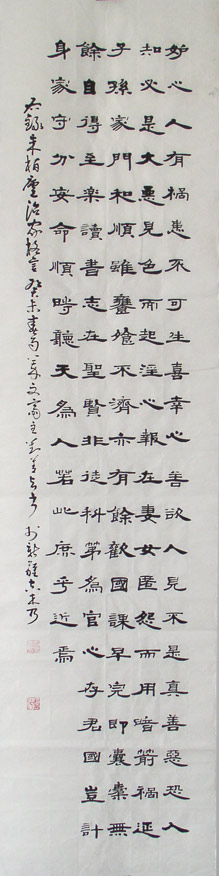 妒心人有禍患不可生喜幸心善欲人見不是真善惡恐人
知必是大惡見色而起淫心報在妻女匿怨而用暗箭禍延
子孫家門和順雖饔飧不濟亦有餘歡國課早完即囊橐無
餘自得至樂讀書志在聖賢非徒科第為官心存君國豈計
身家守分安命順時聽天為人若此庶乎近焉
右錄朱柏廬治家格言癸未春